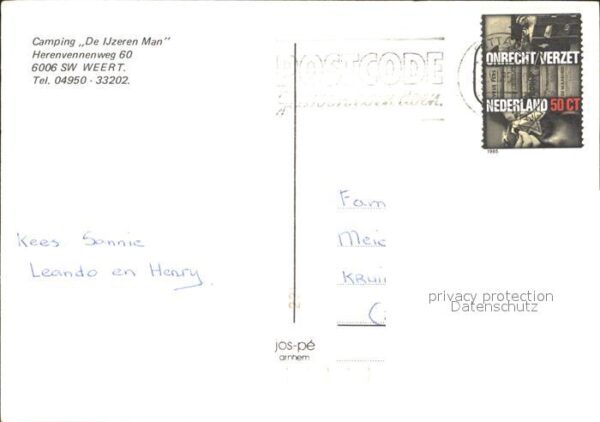 Camping „De IJzeren Man”
Herenvennenweg 60
6006 SW WEERT.
Tel. 04950 - 33202.
POSTCODE
ONRECHT/VERZET
NEDERLAND 50 CT
1985
Fam
Kees Sonnie
Leando en Henry.
privacy protection
Datenschutz
jos-pé
arnhem